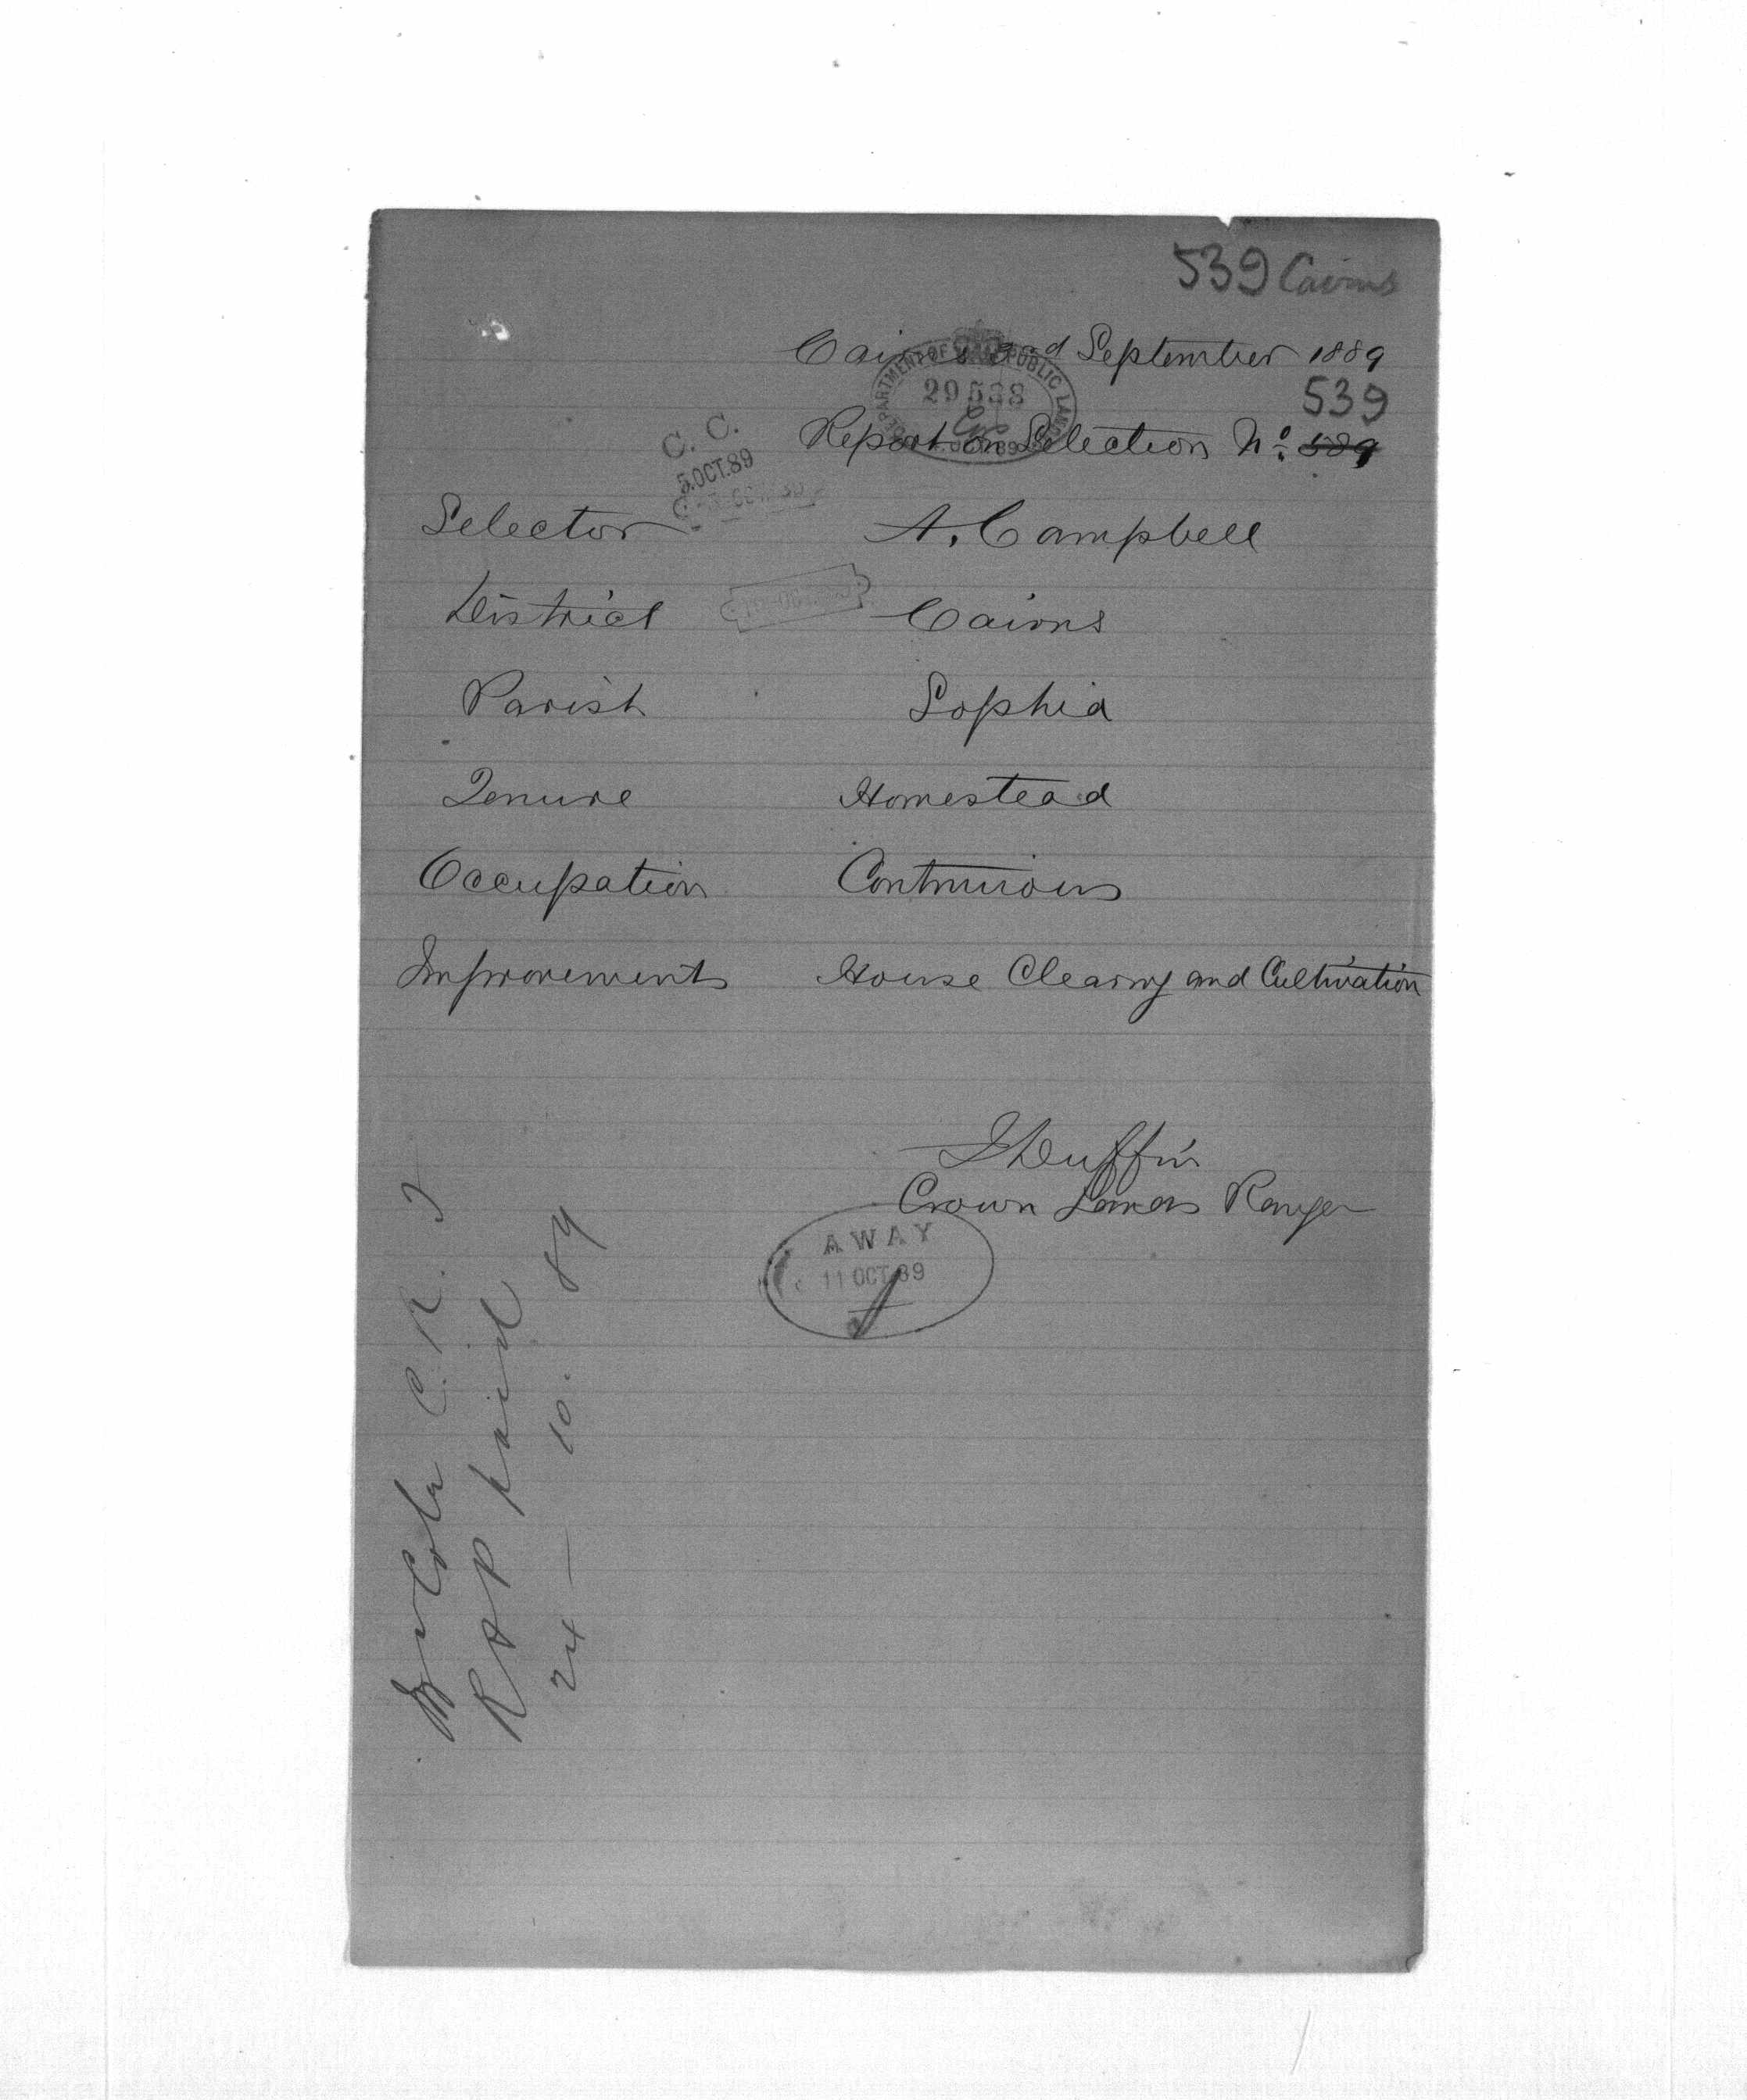 539 Cairns
Cairns September 1889
DEPARTMENT OF PUBLIC LANDS
29538
OCT.89
539
Report on Selection No. 589
C. C.
5.OCT.89
Selector A. Campbell
District Cairns
Parish Sophia
Tenure Homestead
Occupation Continuous
Improvements House Clearing and Cultivation
Duffin
Crown Lands Ranger
AWAY
11 OCT.89
C. R.
paid
24 — 10. 89